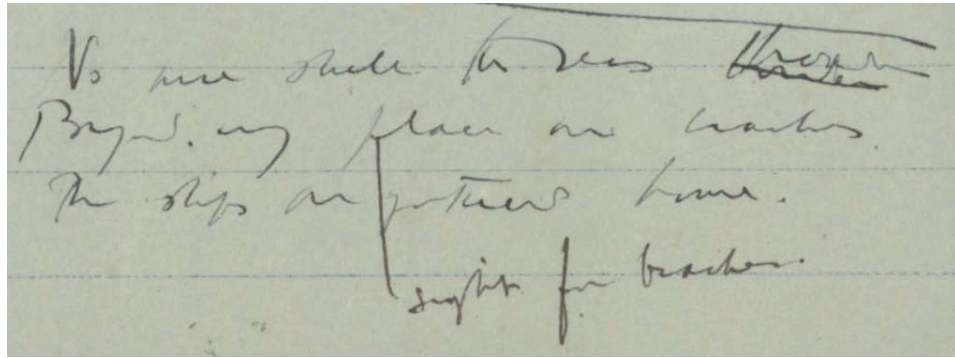 No more shall the seas
Beyond any place or beaches
The ships are gathered home.
sight for beaches.